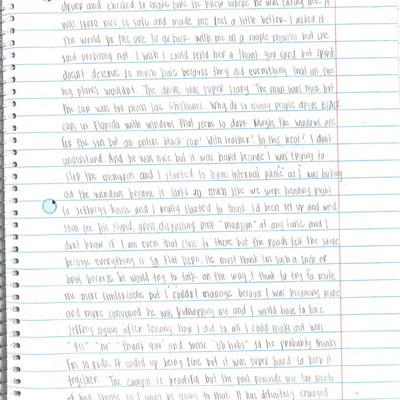 driver and checked to make sure he knew where he was taking me. It
was more nice to safe and made me feel a little better. I asked if
she would be the one to go back with me in a couple months but she
said probably not. I wish I could send her a thank you card but Spirit
doesnt deserve to much hate because they did everything that all the
big planes wouldnt. The drive was super scary. The man was nice but
the car was too much like Ghislaines. Why do so many people drive BLACK
cars in Florida with windows that seem so dark. Maybe the windows are
for the sun but an entire black car? With leather? In this heat? I dont
understand. And he was nice but it was hard because I was trying to
stop the memories and I started to have internal panic as I was looking
out the window because it looks so much like we were heading right
to Jeffreys house and I really started to think I'd been set up and we'd
soon see his stupid, gross, disgusting pink "mansion" at any time and I
dont know if I am even that close to there but the roads felt the same
because everything is so flat here. He must think im such a snob or
brat because he would try to talk on the way, I think to try to make
me more comfortable but I couldnt manage because I was becoming more
and more convinced he was kidnapping me and I would have to face
Jeffery again after leaving how I did so all I could make out was
"yes" "no" "thank you" and some "uh huhs" so he probably thinks
I'm so rude. It ended up being fine but it was super hard to keep it
together. The campus is beautiful but the pool reminds me too much
of bad things so I wont be going to that. It has definitely changed